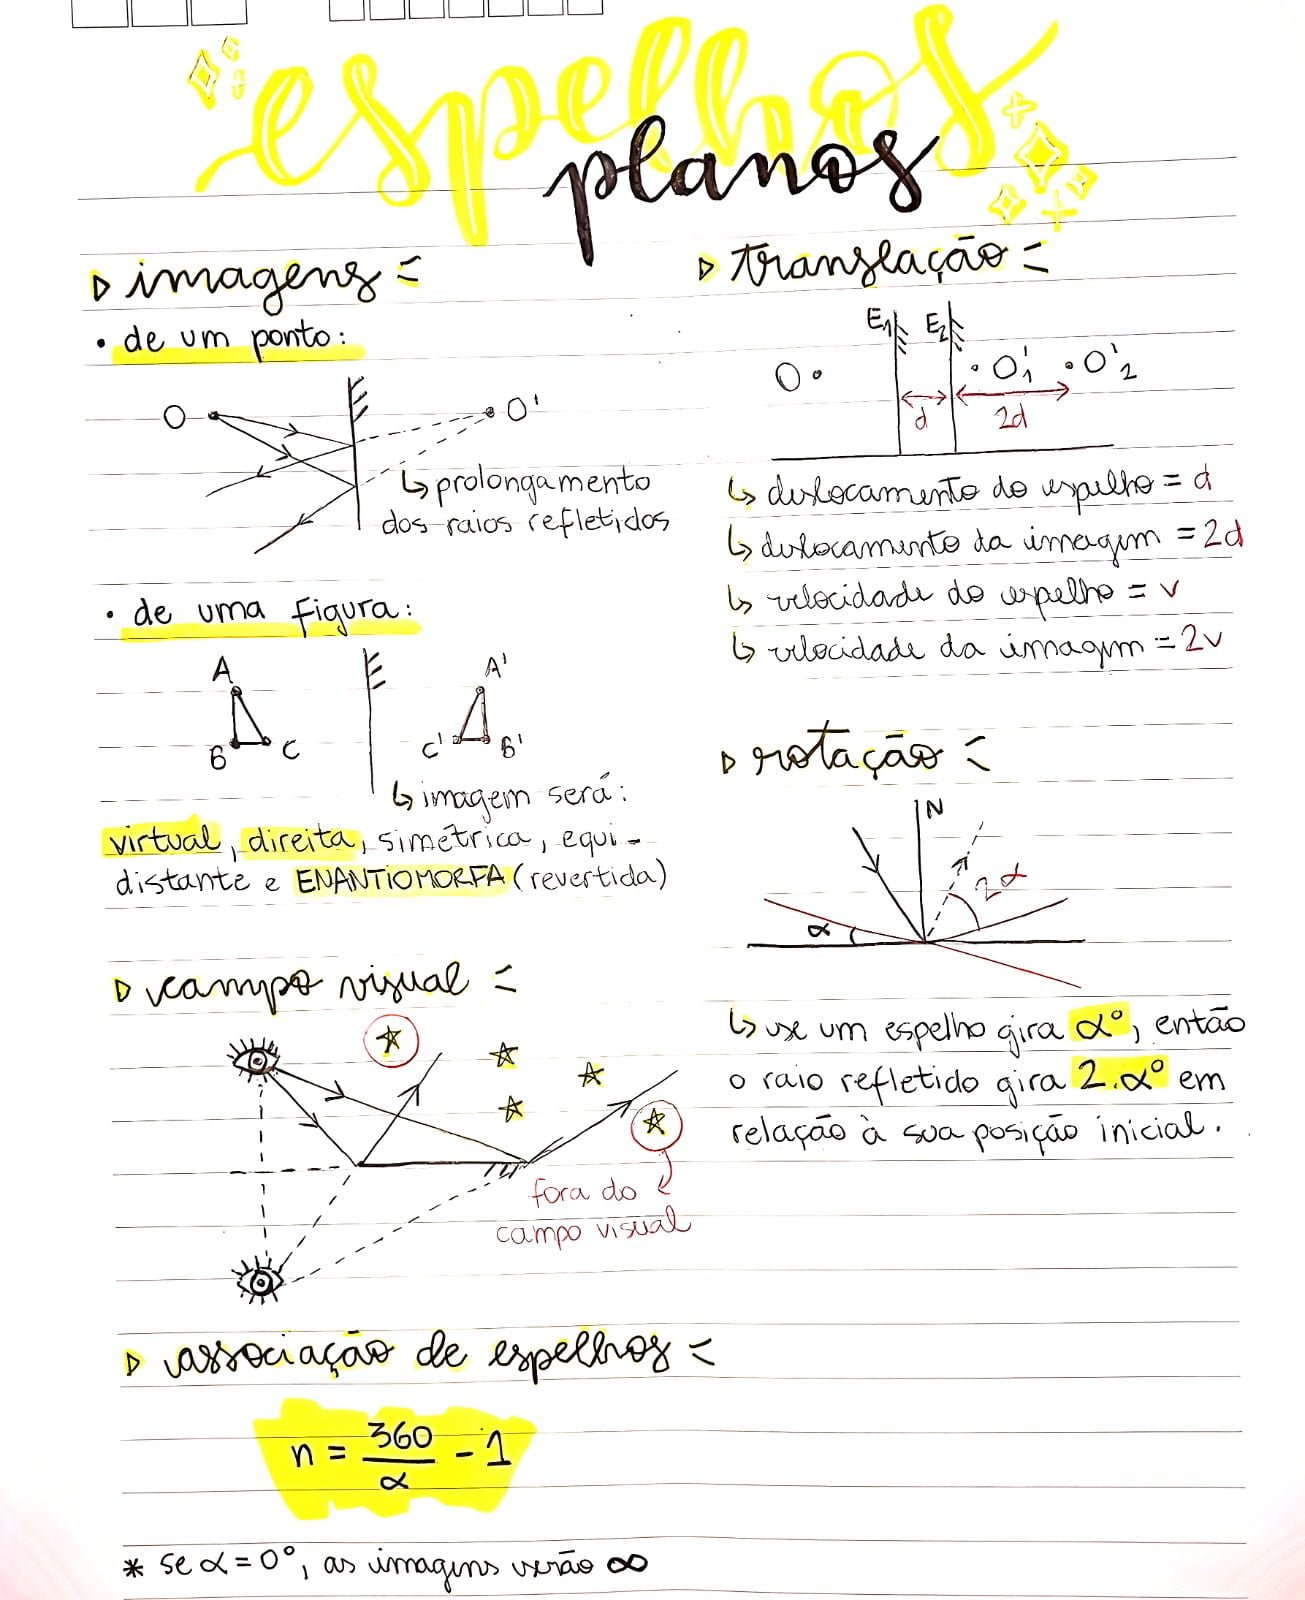 espelhos
planos
▷ imagens =
• de um ponto:
O
O'
↳ prolongamento
dos raios refletidos
• de uma figura:
A
B
C
A'
C'
B'
↳ imagem será:
virtual, direita, simétrica, equi-
distante e ENANTIOMORFA (revertida)
▷ campo visual =
fora do
campo visual
▷ associação de espelhos =
n = 360/α - 1
* se α = 0°, as imagens serão ∞
▷ translação =
E1 E2
O • • O'1 • O'2
d 2d
↳ deslocamento do espelho = d
↳ deslocamento da imagem = 2d
↳ velocidade do espelho = v
↳ velocidade da imagem = 2v
▷ rotação =
N
2α
α
↳ se um espelho gira α°, então
o raio refletido gira 2.α° em
relação à sua posição inicial.